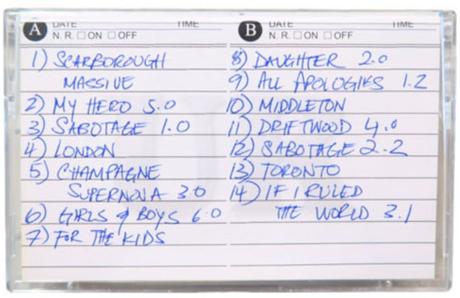 A DATE TIME
N. R. ☐ ON ☐ OFF
1) SCARBOROUGH
MASSIVE
2) MY HERO 5.0
3) SABOTAGE 1.0
4) LONDON
5) CHAMPAGNE
SUPERNOVA 3.0
6) GIRLS & BOYS 6.0
7) FOR THE KIDS
B DATE TIME
N. R. ☐ ON ☐ OFF
8) DAUGHTER 2.0
9) ALL APOLOGIES 1.2
10) MIDDLETON
11) DRIFTWOOD 4.0
12) SABOTAGE 2.2
13) TORONTO
14) IF I RULED
THE WORLD 3.1